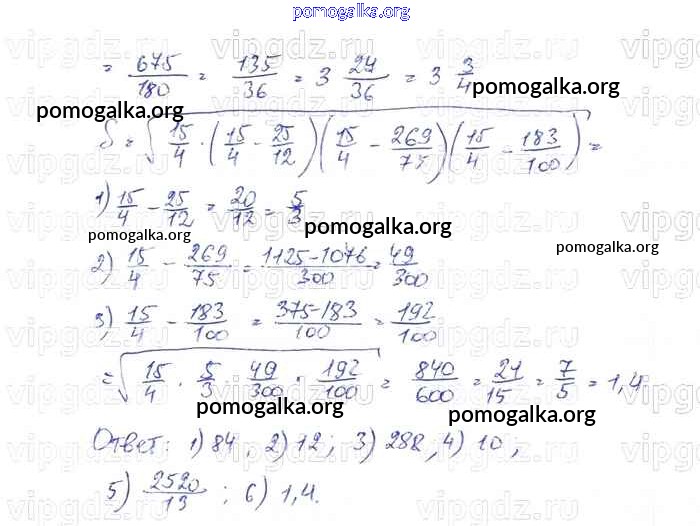 pomogalka.org
= 675/180 = 135/36 = 3 24/36 = 3 3/4
pomogalka.org
pomogalka.org
S = √(15/4 · (15/4 - 25/12)(15/4 - 269/75)(15/4 - 183/100)) =
1) 15/4 - 25/12 = 20/12 = 5/3
pomogalka.org
pomogalka.org
pomogalka.org
2) 15/4 - 269/75 = 1125-1076/300 = 49/300
3) 15/4 - 183/100 = 375-183/100 = 192/100
= √(15/4 · 5/3 · 49/300 · 192/100) = 840/600 = 21/15 = 7/5 = 1,4.
pomogalka.org
pomogalka.org
Ответ: 1) 84, 2) 12; 3) 288, 4) 10,
5) 2520/13; 6) 1,4.
vipgdz.ru